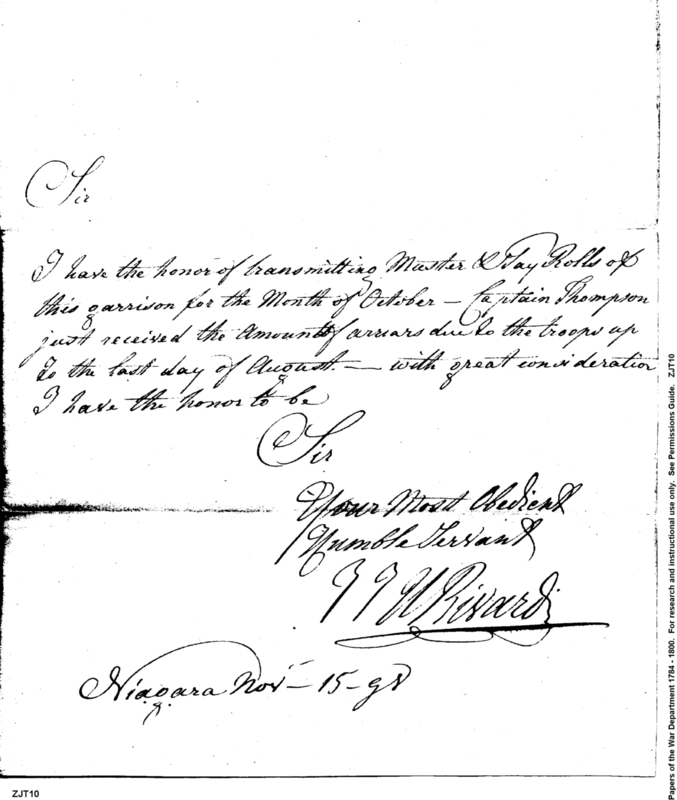 Sir
I have the honor of transmitting Muster & Pay Rolls of
this garrison for the Month of October — Captain Thompson
just received the Amount of arriars due to the troops up
to the last day of August. — with great consideration
I have the honor to be
Sir
Your Most Obedient
Humble Servant
J J U Rivardi
Niagara Novr — 15 - 98
ZJT10
Papers of the War Department 1784 - 1800. For research and instructional use only. See Permissions Guide. ZJT10